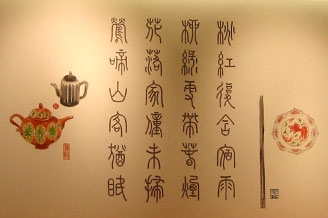 桃紅復含宿雨
柳綠更帶春煙
花落家僮未掃
鶯啼山客猶眠